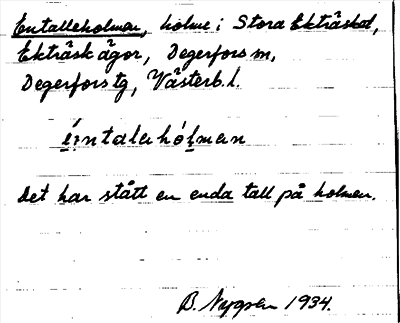 Entalleholmen, holme i Stora Ekträsket,
Ekträsk ägor, Degerfors sn,
Degerfors tg, Västerb. l.
éintalahólman
Det har stått en enda tall på holmen.
B. 1934.